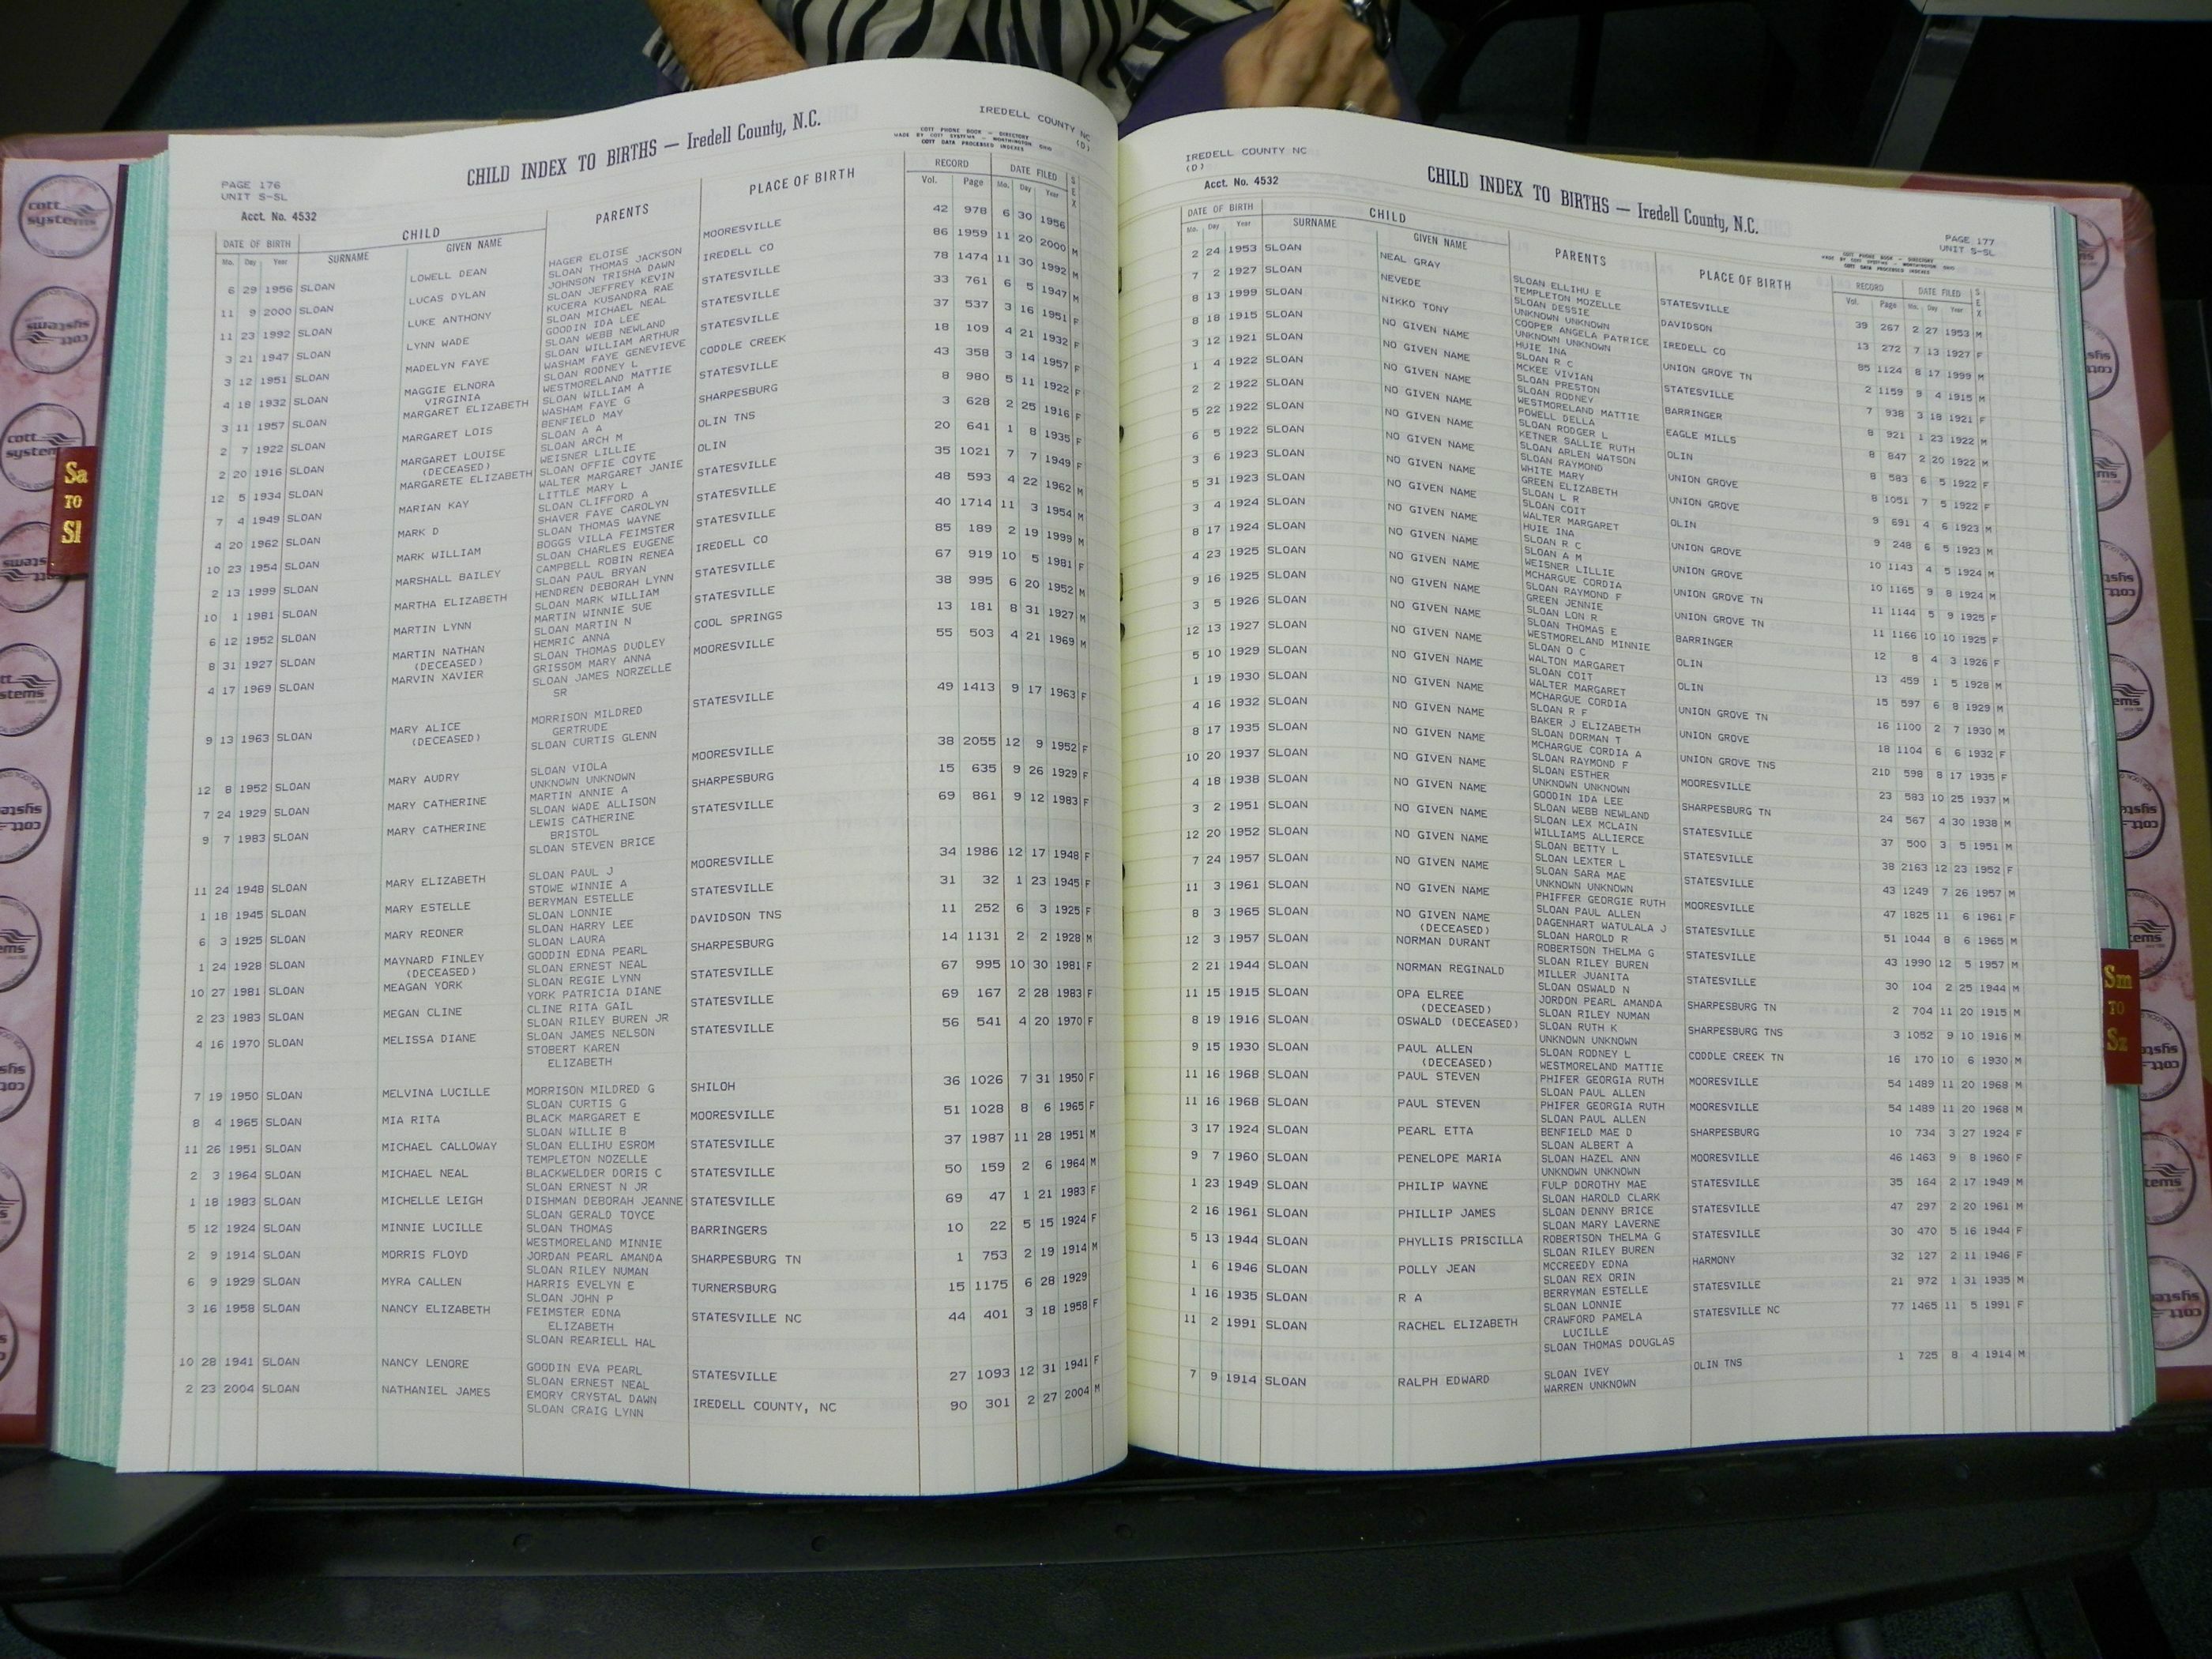 IREDELL COUNTY NC
(D)
CHILD INDEX TO BIRTHS — Iredell County, N.C.
COTT PHONE BOOK — DIRECTORY
MADE BY COTT SYSTEMS — WORTHINGTON OHIO
COTT DATA PROCESSED INDEXES
PAGE 176
UNIT S-SL
Acct. No. 4532
CHILD PARENTS PLACE OF BIRTH RECORD DATE FILED SEX
DATE OF BIRTH SURNAME GIVEN NAME
Mo. Day Year Vol. Page Mo. Day Year
6 29 1956 SLOAN LOWELL DEAN HAGER ELOISE MOORESVILLE 42 978 6 30 1956 M
SLOAN THOMAS JACKSON
11 9 2000 SLOAN LUCAS DYLAN JOHNSON TRISHA DAWN IREDELL CO 86 1959 11 20 2000 M
SLOAN JEFFREY KEVIN
11 23 1992 SLOAN LUKE ANTHONY KUCERA KUSANDRA RAE STATESVILLE 78 1474 11 30 1992 M
SLOAN MICHAEL NEAL
3 21 1947 SLOAN LYNN WADE GOODIN IDA LEE STATESVILLE 33 761 6 5 1947
SLOAN WEBB NEWLAND
3 12 1951 SLOAN MADELYN FAYE SLOAN WILLIAM ARTHUR STATESVILLE 37 537 3 16 1951 F
WASHAM FAYE GENEVIEVE
4 18 1932 SLOAN MAGGIE ELNORA SLOAN RODNEY L CODDLE CREEK 18 109 4 21 1932 F
VIRGINIA WESTMORELAND MATTIE
3 11 1957 SLOAN MARGARET ELIZABETH SLOAN WILLIAM A STATESVILLE 43 358 3 14 1957 F
WASHAM FAYE G
2 7 1922 SLOAN MARGARET LOIS BENFIELD MAY SHARPESBURG 8 980 5 11 1922 F
SLOAN A A
2 20 1916 SLOAN MARGARET LOUISE SLOAN ARCH M OLIN TNS 3 628 2 25 1916 F
(DECEASED) WEISNER LILLIE
12 5 1934 SLOAN MARGARETE ELIZABETH SLOAN OFFIE COYTE OLIN 20 641 1 8 1935 F
WALTER MARGARET JANIE
7 4 1949 SLOAN MARIAN KAY LITTLE MARY L STATESVILLE 35 1021 7 7 1949 F
SLOAN CLIFFORD A
4 20 1962 SLOAN MARK D SHAVER FAYE CAROLYN STATESVILLE 48 593 4 22 1962 M
SLOAN THOMAS WAYNE
10 23 1954 SLOAN MARK WILLIAM BOGGS VILLA FEIMSTER STATESVILLE 40 1714 11 3 1954 M
SLOAN CHARLES EUGENE
2 13 1999 SLOAN MARSHALL BAILEY CAMPBELL ROBIN RENEA IREDELL CO 85 189 2 19 1999 M
SLOAN PAUL BRYAN
10 1 1981 SLOAN MARTHA ELIZABETH HENDREN DEBORAH LYNN STATESVILLE 67 919 10 5 1981 F
SLOAN MARK WILLIAM
6 12 1952 SLOAN MARTIN LYNN MARTIN WINNIE SUE STATESVILLE 38 995 6 20 1952 M
SLOAN MARTIN N
8 31 1927 SLOAN MARTIN NATHAN HEMRIC ANNA COOL SPRINGS 13 181 8 31 1927 M
(DECEASED) SLOAN THOMAS DUDLEY
4 17 1969 SLOAN MARVIN XAVIER GRISSOM MARY ANNA MOORESVILLE 55 503 4 21 1969 M
SLOAN JAMES NORZELLE
SR
9 13 1963 SLOAN MARY ALICE MORRISON MILDRED STATESVILLE 49 1413 9 17 1963 F
(DECEASED) GERTRUDE
SLOAN CURTIS GLENN
12 8 1952 SLOAN MARY AUDRY SLOAN VIOLA MOORESVILLE 38 2055 12 9 1952 F
UNKNOWN UNKNOWN
7 24 1929 SLOAN MARY CATHERINE MARTIN ANNIE A SHARPESBURG 15 635 9 26 1929 F
SLOAN WADE ALLISON
9 7 1983 SLOAN MARY CATHERINE LEWIS CATHERINE STATESVILLE 69 861 9 12 1983 F
BRISTOL
SLOAN STEVEN BRICE
11 24 1948 SLOAN MARY ELIZABETH SLOAN PAUL J MOORESVILLE 34 1986 12 17 1948 F
STOWE WINNIE A
1 18 1945 SLOAN MARY ESTELLE BERYMAN ESTELLE STATESVILLE 31 32 1 23 1945 F
SLOAN LONNIE
6 3 1925 SLOAN MARY REDNER SLOAN HARRY LEE DAVIDSON TNS 11 252 6 3 1925 F
SLOAN LAURA
1 24 1928 SLOAN MAYNARD FINLEY GOODIN EDNA PEARL SHARPESBURG 14 1131 2 2 1928 M
(DECEASED) SLOAN ERNEST NEAL
10 27 1981 SLOAN MEAGAN YORK SLOAN REGIE LYNN STATESVILLE 67 995 10 30 1981 F
YORK PATRICIA DIANE
2 23 1983 SLOAN MEGAN CLINE CLINE RITA GAIL STATESVILLE 69 167 2 28 1983 F
SLOAN RILEY BUREN JR
4 16 1970 SLOAN MELISSA DIANE SLOAN JAMES NELSON STATESVILLE 56 541 4 20 1970 F
STOBERT KAREN
ELIZABETH
7 19 1950 SLOAN MELVINA LUCILLE MORRISON MILDRED G SHILOH 36 1026 7 31 1950 F
SLOAN CURTIS G
8 4 1965 SLOAN MIA RITA BLACK MARGARET E MOORESVILLE 51 1028 8 6 1965 F
SLOAN WILLIE B
11 26 1951 SLOAN MICHAEL CALLOWAY SLOAN ELLIHU ESROM STATESVILLE 37 1987 11 28 1951 M
TEMPLETON NOZELLE
2 3 1964 SLOAN MICHAEL NEAL BLACKWELDER DORIS C STATESVILLE 50 159 2 6 1964 M
SLOAN ERNEST N JR
1 18 1983 SLOAN MICHELLE LEIGH DISHMAN DEBORAH JEANNE STATESVILLE 69 47 1 21 1983 F
SLOAN GERALD TOYCE
5 12 1924 SLOAN MINNIE LUCILLE SLOAN THOMAS BARRINGERS 10 22 5 15 1924 F
WESTMORELAND MINNIE
2 9 1914 SLOAN MORRIS FLOYD JORDAN PEARL AMANDA SHARPESBURG TN 1 753 2 19 1914 M
SLOAN RILEY NUMAN
6 9 1929 SLOAN MYRA CALLEN HARRIS EVELYN E TURNERSBURG 15 1175 6 28 1929
SLOAN JOHN P
3 16 1958 SLOAN NANCY ELIZABETH FEIMSTER EDNA STATESVILLE NC 44 401 3 18 1958 F
ELIZABETH
SLOAN REARIELL HAL
10 28 1941 SLOAN NANCY LENORE GOODIN EVA PEARL STATESVILLE 27 1093 12 31 1941 F
SLOAN ERNEST NEAL
2 23 2004 SLOAN NATHANIEL JAMES EMORY CRYSTAL DAWN IREDELL COUNTY, NC 90 301 2 27 2004 M
SLOAN CRAIG LYNN
IREDELL COUNTY NC
(D)
Acct. No. 4532
CHILD INDEX TO BIRTHS — Iredell County, N.C.
PAGE 177
UNIT S-SL
COTT PHONE BOOK — DIRECTORY
MADE BY COTT SYSTEMS — WORTHINGTON OHIO
COTT DATA PROCESSED INDEXES
DATE OF BIRTH CHILD PARENTS PLACE OF BIRTH RECORD DATE FILED SEX
Mo. Day Year SURNAME GIVEN NAME Vol. Page Mo. Day Year
2 24 1953 SLOAN NEAL GRAY SLOAN ELLIHU E STATESVILLE 39 267 2 27 1953 M
TEMPLETON MOZELLE
7 2 1927 SLOAN NEVEDE SLOAN DESSIE DAVIDSON 13 272 7 13 1927 F
UNKNOWN UNKNOWN
8 13 1999 SLOAN NIKKO TONY COOPER ANGELA PATRICE IREDELL CO 85 1124 8 17 1999 M
UNKNOWN UNKNOWN
8 18 1915 SLOAN NO GIVEN NAME HUIE INA UNION GROVE TN 2 1159 9 4 1915 M
SLOAN R C
3 12 1921 SLOAN NO GIVEN NAME MCKEE VIVIAN STATESVILLE 7 938 3 18 1921 F
SLOAN PRESTON
1 4 1922 SLOAN NO GIVEN NAME SLOAN RODNEY BARRINGER 8 921 1 23 1922 M
WESTMORELAND MATTIE
2 2 1922 SLOAN NO GIVEN NAME POWELL DELLA EAGLE MILLS 8 847 2 20 1922 M
SLOAN RODGER L
5 22 1922 SLOAN NO GIVEN NAME KETNER SALLIE RUTH OLIN 8 583 6 5 1922 F
SLOAN ARLEN WATSON
6 5 1922 SLOAN NO GIVEN NAME SLOAN RAYMOND UNION GROVE 8 1051 7 5 1922 F
WHITE MARY
3 6 1923 SLOAN NO GIVEN NAME GREEN ELIZABETH UNION GROVE 9 691 4 6 1923 M
SLOAN L R
5 31 1923 SLOAN NO GIVEN NAME SLOAN COIT OLIN 9 248 6 5 1923 M
WALTER MARGARET
3 4 1924 SLOAN NO GIVEN NAME HUIE INA UNION GROVE 10 1143 4 5 1924 M
SLOAN R C
8 17 1924 SLOAN NO GIVEN NAME SLOAN A M UNION GROVE 10 1165 9 8 1924 M
WEISNER LILLIE
4 23 1925 SLOAN NO GIVEN NAME MCHARGUE CORDIA UNION GROVE TN 11 1144 5 9 1925 F
SLOAN RAYMOND F
9 16 1925 SLOAN NO GIVEN NAME GREEN JENNIE UNION GROVE TN 11 1166 10 10 1925 F
SLOAN LON R
3 5 1926 SLOAN NO GIVEN NAME SLOAN THOMAS E BARRINGER 12 8 4 3 1926 F
WESTMORELAND MINNIE
12 13 1927 SLOAN NO GIVEN NAME SLOAN O C OLIN 13 459 1 5 1928 M
WALTON MARGARET
5 10 1929 SLOAN NO GIVEN NAME SLOAN COIT OLIN 15 597 6 8 1929 M
WALTER MARGARET
1 19 1930 SLOAN NO GIVEN NAME MCHARGUE CORDIA UNION GROVE TN 16 1100 2 7 1930 M
SLOAN R F
4 16 1932 SLOAN NO GIVEN NAME BAKER J ELIZABETH UNION GROVE 18 1104 6 6 1932 F
SLOAN DORMAN T
8 17 1935 SLOAN NO GIVEN NAME MCHARGUE CORDIA A UNION GROVE TNS 210 598 8 17 1935 F
SLOAN RAYMOND F
10 20 1937 SLOAN NO GIVEN NAME SLOAN ESTHER MOORESVILLE 23 583 10 25 1937 M
UNKNOWN UNKNOWN
4 18 1938 SLOAN NO GIVEN NAME GOODIN IDA LEE SHARPESBURG TN 24 567 4 30 1938 M
SLOAN WEBB NEWLAND
3 2 1951 SLOAN NO GIVEN NAME SLOAN LEX MCLAIN STATESVILLE 37 500 3 5 1951 M
WILLIAMS ALLIERCE
12 20 1952 SLOAN NO GIVEN NAME SLOAN BETTY L STATESVILLE 38 2163 12 23 1952 F
SLOAN LEXTER L
7 24 1957 SLOAN NO GIVEN NAME SLOAN SARA MAE STATESVILLE 43 1249 7 26 1957 M
UNKNOWN UNKNOWN
11 3 1961 SLOAN NO GIVEN NAME PHIFFER GEORGIE RUTH MOORESVILLE 47 1825 11 6 1961 F
SLOAN PAUL ALLEN
8 3 1965 SLOAN NO GIVEN NAME DAGENHART WATULALA J STATESVILLE 51 1044 8 6 1965 M
(DECEASED) SLOAN HAROLD R
12 3 1957 SLOAN NORMAN DURANT ROBERTSON THELMA G STATESVILLE 43 1990 12 5 1957 M
SLOAN RILEY BUREN
2 21 1944 SLOAN NORMAN REGINALD MILLER JUANITA STATESVILLE 30 104 2 25 1944 M
SLOAN OSWALD N
11 15 1915 SLOAN OPA ELREE JORDON PEARL AMANDA SHARPESBURG TN 2 704 11 20 1915 M
(DECEASED) SLOAN RILEY NUMAN
8 19 1916 SLOAN OSWALD (DECEASED) SLOAN RUTH K SHARPESBURG TNS 3 1052 9 10 1916 M
UNKNOWN UNKNOWN
9 15 1930 SLOAN PAUL ALLEN SLOAN RODNEY L CODDLE CREEK TN 16 170 10 6 1930 M
(DECEASED) WESTMORELAND MATTIE
11 16 1968 SLOAN PAUL STEVEN PHIFER GEORGIA RUTH MOORESVILLE 54 1489 11 20 1968 M
SLOAN PAUL ALLEN
11 16 1968 SLOAN PAUL STEVEN PHIFER GEORGIA RUTH MOORESVILLE 54 1489 11 20 1968 M
SLOAN PAUL ALLEN
3 17 1924 SLOAN PEARL ETTA BENFIELD MAE D SHARPESBURG 10 734 3 27 1924 F
SLOAN ALBERT A
9 7 1960 SLOAN PENELOPE MARIA SLOAN HAZEL ANN MOORESVILLE 46 1463 9 8 1960 F
UNKNOWN UNKNOWN
1 23 1949 SLOAN PHILIP WAYNE FULP DOROTHY MAE STATESVILLE 35 164 2 17 1949 M
SLOAN HAROLD CLARK
2 16 1961 SLOAN PHILLIP JAMES SLOAN DENNY BRICE STATESVILLE 47 297 2 20 1961 M
SLOAN MARY LAVERNE
5 13 1944 SLOAN PHYLLIS PRISCILLA ROBERTSON THELMA G STATESVILLE 30 470 5 16 1944 F
SLOAN RILEY BUREN
1 6 1946 SLOAN POLLY JEAN MCCREEDY EDNA HARMONY 32 127 2 11 1946 F
SLOAN REX ORIN
1 16 1935 SLOAN R A BERRYMAN ESTELLE STATESVILLE 21 972 1 31 1935 M
SLOAN LONNIE
11 2 1991 SLOAN RACHEL ELIZABETH CRAWFORD PAMELA STATESVILLE NC 77 1465 11 5 1991 F
LUCILLE
SLOAN THOMAS DOUGLAS
7 9 1914 SLOAN RALPH EDWARD SLOAN IVEY OLIN TNS 1 725 8 4 1914 M
WARREN UNKNOWN
Sa
TO
Sl
Sm
TO
Sz
cott
systems